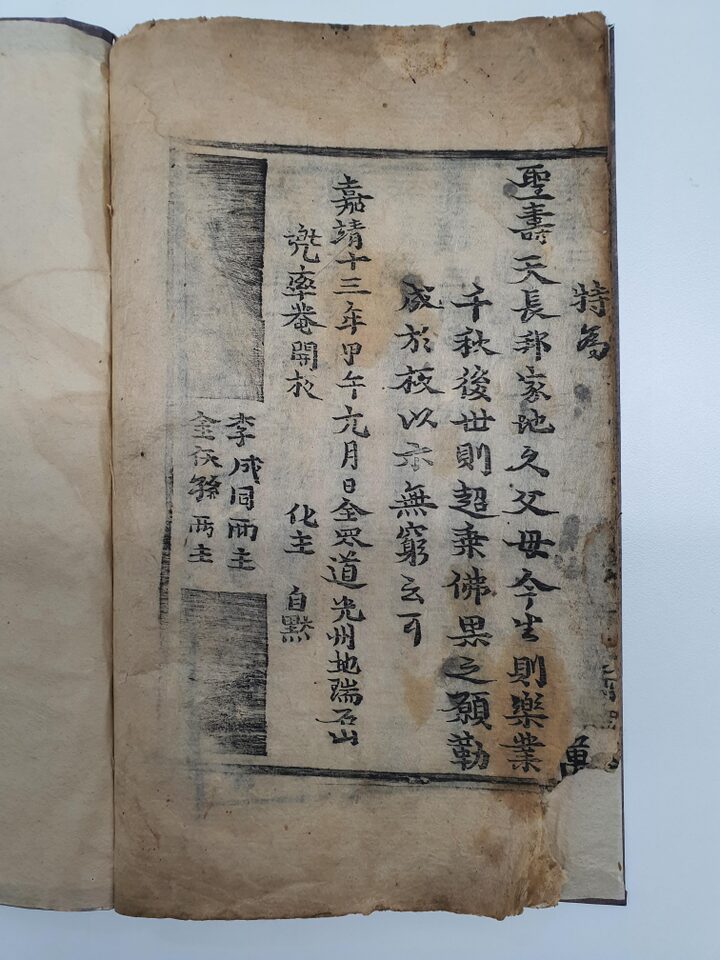 特為
萬
聖壽天長邦家地久父母今生則樂業
千秋後世則超乘佛果之願勒
成於板以示無窮云可
嘉靖十三年甲午六月日全羅道光州地瑞石山
兜率菴開板 化主 自默
李成同兩主
金 孫兩主